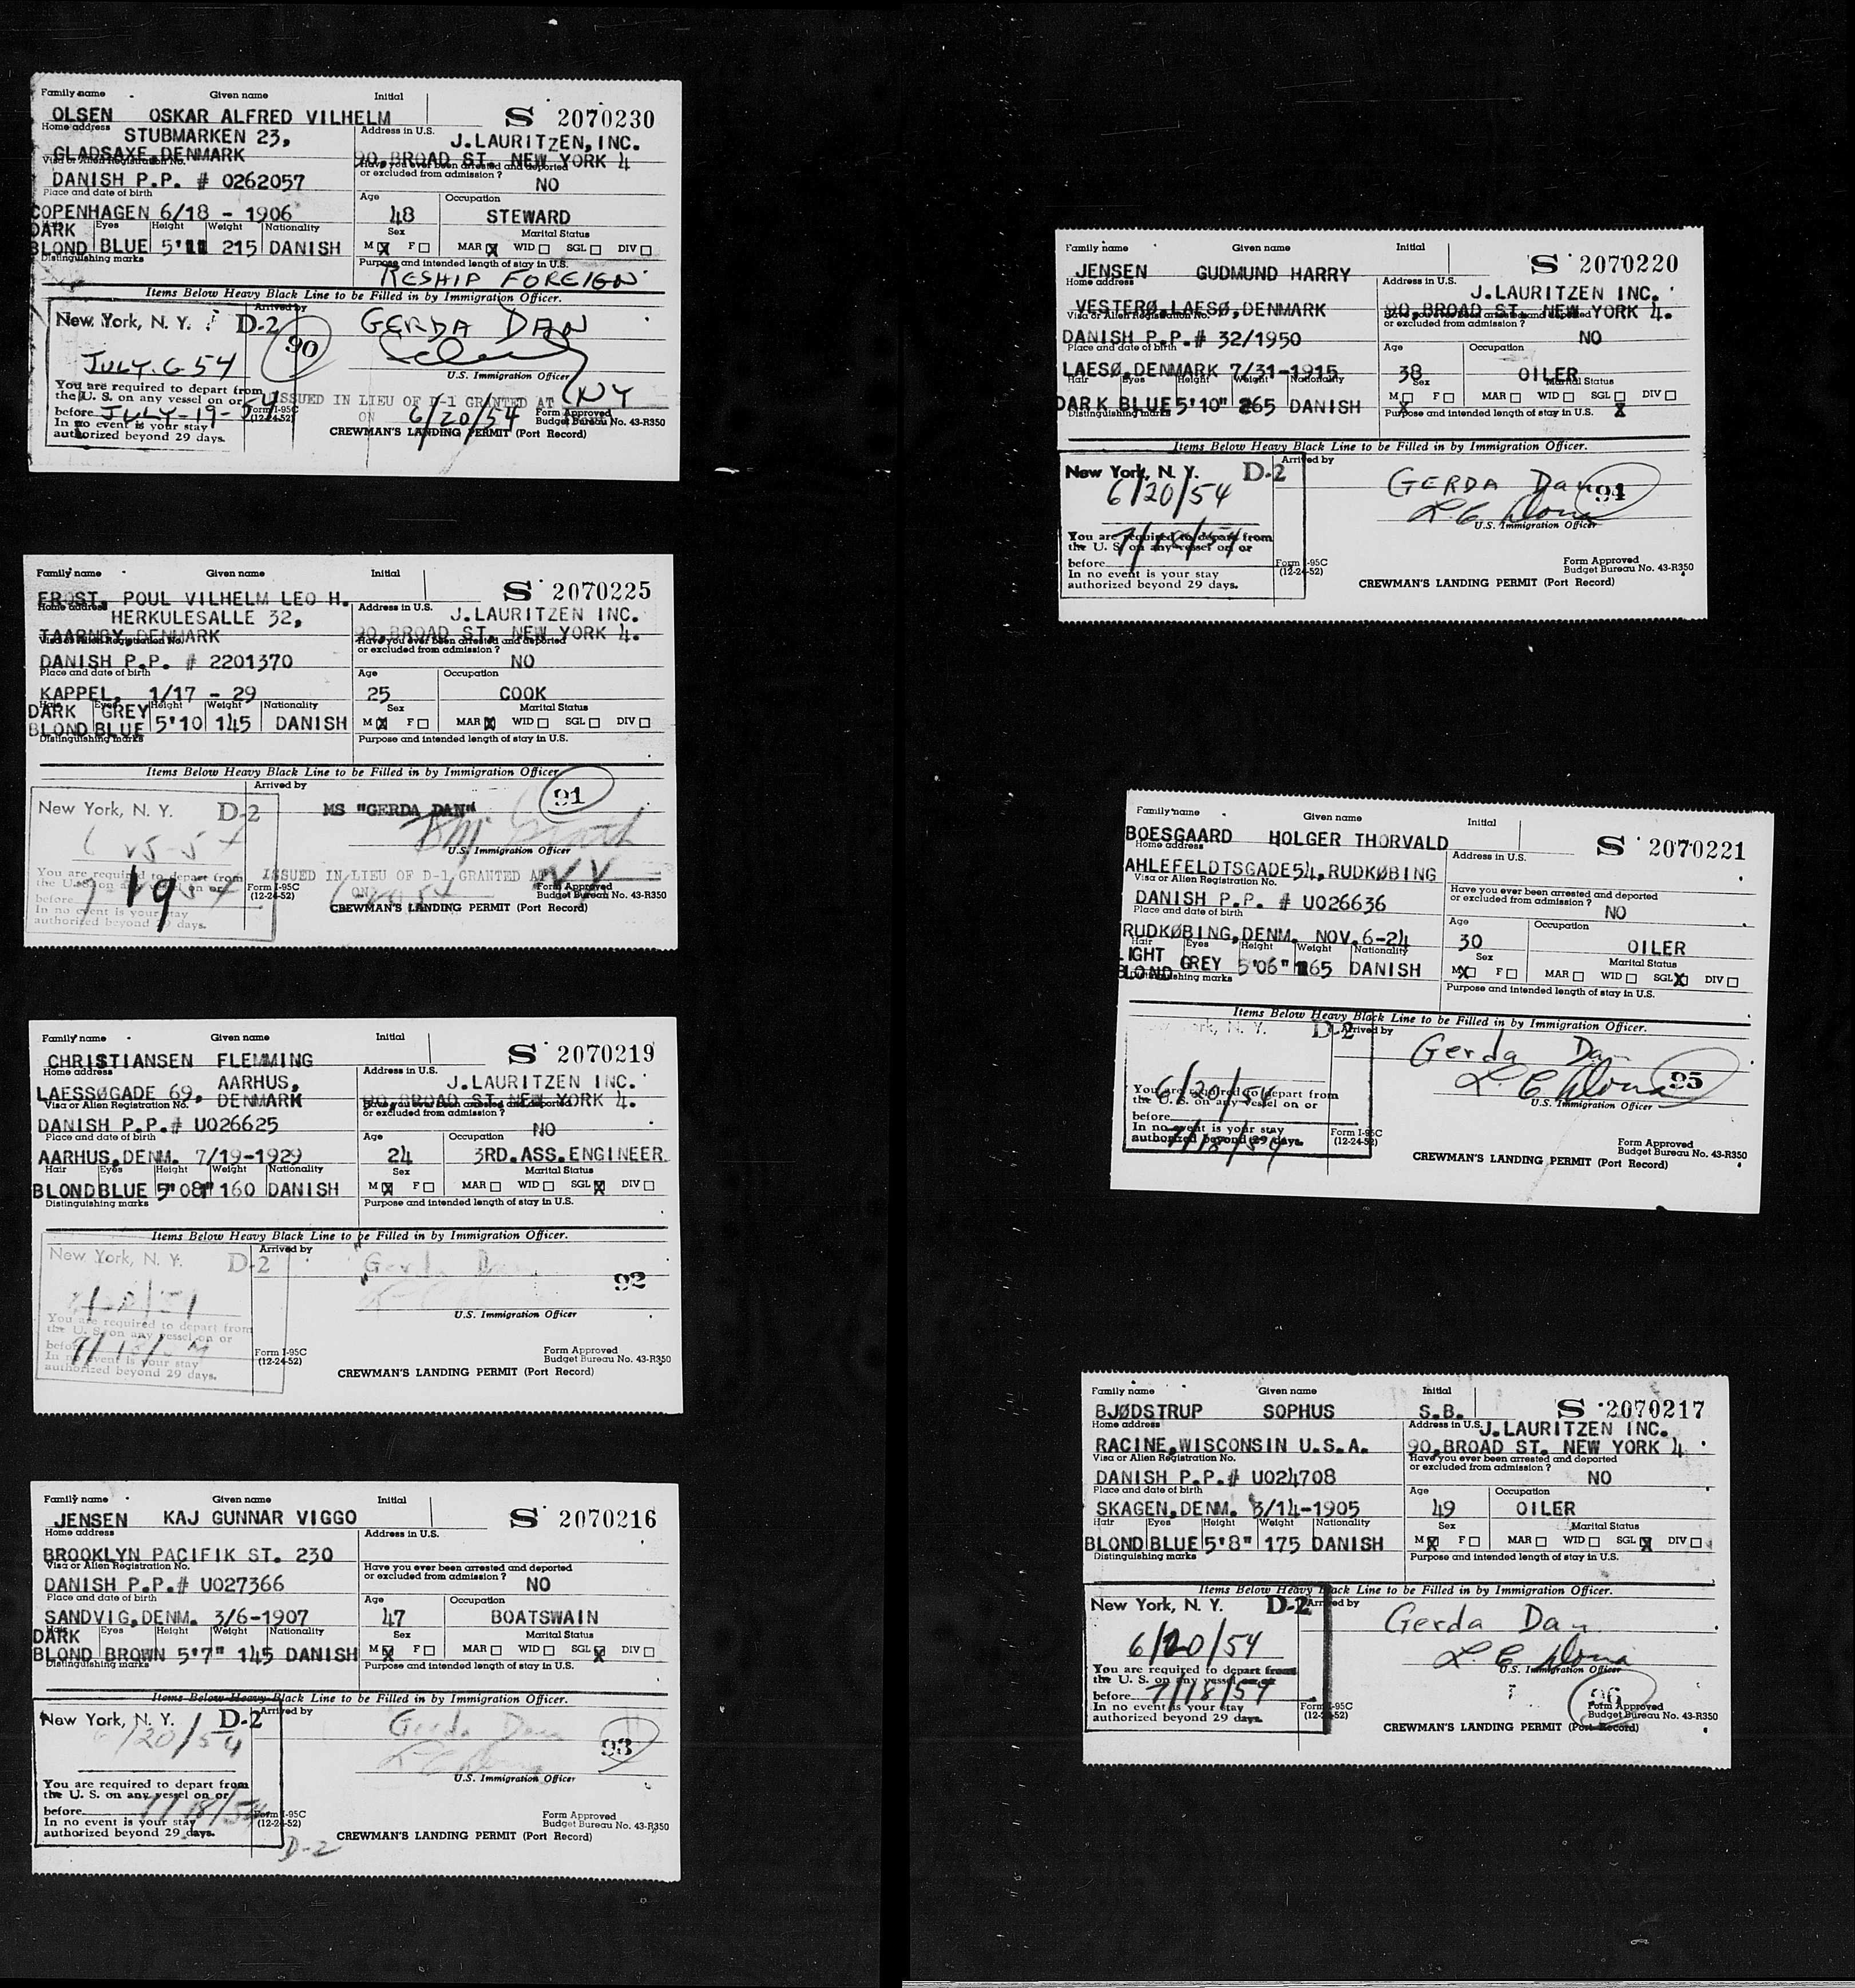 Family name Given name Initial
OLSEN OSKAR ALFRED VILHELM S 2070230
Home address Address in U.S.
STUBMARKEN 23, J.LAURITZEN, INC.
GLADSAXE, DENMARK 90, BROAD ST. NEW YORK 4
Visa or Alien Registration No. Have you ever been arrested and deported
or excluded from admission ?
DANISH P.P. # 0262057 NO
Place and date of birth Age Occupation
COPENHAGEN 6/18 - 1906 48 STEWARD
Hair Eyes Height Weight Nationality Sex Marital Status
DARK
BLOND BLUE 5'11 215 DANISH M X F MAR X WID SGL DIV
Distinguishing marks Purpose and intended length of stay in U.S.
RESHIP FOREIGN
Items Below Heavy Black Line to be Filled in by Immigration Officer.
Arrived by
New York, N. Y. D-2 90 GERDA DAN
JULY-6-54
U.S. Immigration Officer
You are required to depart from
the U. S. on any vessel on or ISSUED IN LIEU OF D-1 GRANTED AT NY
before JULY-19-54 Form I-95C ON 6/20/54 Form Approved
In no event is your stay (12-24-52) Budget Bureau No. 43-R350
authorized beyond 29 days. CREWMAN'S LANDING PERMIT (Port Record)
Family name Given name Initial
FROST, POUL VILHELM LEO H. S 2070225
Home address Address in U.S.
HERKULESALLE 32, J.LAURITZEN INC.
TAARNBY, DENMARK 90, BROAD ST. NEW YORK 4.
Visa or Alien Registration No. Have you ever been arrested and deported
or excluded from admission ?
DANISH P.P. # 2201370 NO
Place and date of birth Age Occupation
KAPPEL, 1/17 - 29 25 COOK
Hair Eyes Height Weight Nationality Sex Marital Status
DARK GREY
BLOND BLUE 5'10 145 DANISH M X F MAR X WID SGL DIV
Distinguishing marks Purpose and intended length of stay in U.S.
Items Below Heavy Black Line to be Filled in by Immigration Officer.
Arrived by
New York, N. Y. D-2 MS "GERDA DAN" 91
U.S. Immigration Officer
You are required to depart from
the U. S. on any vessel on or ISSUED IN LIEU OF D-1 GRANTED AT NY
before 7 19 54 Form I-95C ON 6-20-54 Form Approved
In no event is your stay (12-24-52) Budget Bureau No. 43-R350
authorized beyond 29 days. CREWMAN'S LANDING PERMIT (Port Record)
Family name Given name Initial
CHRISTIANSEN FLEMMING S 2070219
Home address Address in U.S.
LAESSØGADE 69, AARHUS, DENMARK J.LAURITZEN INC.
90, BROAD ST. NEW YORK 4.
Visa or Alien Registration No. Have you ever been arrested and deported
or excluded from admission ?
DANISH P.P.# U026625 NO
Place and date of birth Age Occupation
AARHUS, DENM. 7/19-1929 24 3RD. ASS. ENGINEER
Hair Eyes Height Weight Nationality Sex Marital Status
BLOND BLUE 5'08" 160 DANISH M X F MAR WID SGL X DIV
Distinguishing marks Purpose and intended length of stay in U.S.
Items Below Heavy Black Line to be Filled in by Immigration Officer.
Arrived by
New York, N. Y. D-2 Gerda Dan 92
U.S. Immigration Officer
You are required to depart from
the U. S. on any vessel on or
before 7/18/54 Form I-95C Form Approved
In no event is your stay (12-24-52) Budget Bureau No. 43-R350
authorized beyond 29 days. CREWMAN'S LANDING PERMIT (Port Record)
Family name Given name Initial
JENSEN KAJ GUNNAR VIGGO S 2070216
Home address Address in U.S.
BROOKLYN PACIFIK ST. 230
Visa or Alien Registration No. Have you ever been arrested and deported
or excluded from admission ?
DANISH P.P.# U027366 NO
Place and date of birth Age Occupation
SANDVIG, DENM. 3/6-1907 47 BOATSWAIN
Hair Eyes Height Weight Nationality Sex Marital Status
DARK
BLOND BROWN 5'7" 145 DANISH M X F MAR WID SGL X DIV
Distinguishing marks Purpose and intended length of stay in U.S.
Items Below Heavy Black Line to be Filled in by Immigration Officer.
Arrived by
New York, N. Y. D-2 Gerda Dan
6/20/54 93
U.S. Immigration Officer
You are required to depart from
the U. S. on any vessel on or
before 7/18/54 Form I-95C Form Approved
In no event is your stay (12-24-52) Budget Bureau No. 43-R350
authorized beyond 29 days. CREWMAN'S LANDING PERMIT (Port Record)
D-2
Family name Given name Initial
JENSEN GUDMUND HARRY S 2070220
Home address Address in U.S.
J.LAURITZEN INC.
VESTERØ, LAESØ, DENMARK 90, BROAD ST. NEW YORK 4.
Visa or Alien Registration No. Have you ever been arrested and deported
or excluded from admission ?
DANISH P.P.# 32/1950 NO
Place and date of birth Age Occupation
LAESØ, DENMARK 7/31-1915 38 OILER
Hair Eyes Height Weight Nationality Sex Marital Status
DARK BLUE 5'10" 265 DANISH M X F MAR WID SGL X DIV
Distinguishing marks Purpose and intended length of stay in U.S.
Items Below Heavy Black Line to be Filled in by Immigration Officer.
Arrived by
New York, N. Y. D-2 GERDA Dan 94
6/20/54
U.S. Immigration Officer
7/18/54
You are required to depart from
the U. S. on any vessel on or
before Form I-95C Form Approved
In no event is your stay (12-24-52) Budget Bureau No. 43-R350
authorized beyond 29 days. CREWMAN'S LANDING PERMIT (Port Record)
Family name Given name Initial
BOESGAARD HOLGER THORVALD S 2070221
Home address Address in U.S.
AHLEFELDTSGADE54, RUDKØBING
Visa or Alien Registration No. Have you ever been arrested and deported
or excluded from admission ?
DANISH P.P. # U026636 NO
Place and date of birth Age Occupation
RUDKØBING, DENM. NOV.6-24 30 OILER
Hair Eyes Height Weight Nationality Sex Marital Status
LIGHT
BLOND GREY 5'06" 165 DANISH M X F MAR WID SGL X DIV
Distinguishing marks Purpose and intended length of stay in U.S.
Items Below Heavy Black Line to be Filled in by Immigration Officer.
Arrived by
New York, N. Y. D-2 Gerda Dan
95
6/20/54 U.S. Immigration Officer
You are required to depart from
the U. S. on any vessel on or
before
In no event is your stay Form I-95C Form Approved
authorized beyond 29 days. (12-24-52) Budget Bureau No. 43-R350
7/18/54 CREWMAN'S LANDING PERMIT (Port Record)
Family name Given name Initial
BJØDSTRUP SOPHUS S.B. S 2070217
Home address Address in U.S. J.LAURITZEN INC.
RACINE, WISCONSIN U.S.A. 90, BROAD ST. NEW YORK 4
Visa or Alien Registration No. Have you ever been arrested and deported
or excluded from admission ?
DANISH P.P.# U024708 NO
Place and date of birth Age Occupation
SKAGEN, DENM. 3/14-1905 49 OILER
Hair Eyes Height Weight Nationality Sex Marital Status
BLOND BLUE 5'8" 175 DANISH M X F MAR WID SGL X DIV
Distinguishing marks Purpose and intended length of stay in U.S.
Items Below Heavy Black Line to be Filled in by Immigration Officer.
New York, N. Y. D-2 Arrived by Gerda Dan
6/20/54
U.S. Immigration Officer
You are required to depart from
the U. S. on any vessel on or
before 7/18/54 96
In no event is your stay Form I-95C Form Approved
authorized beyond 29 days. (12-24-52) Budget Bureau No. 43-R350
CREWMAN'S LANDING PERMIT (Port Record)